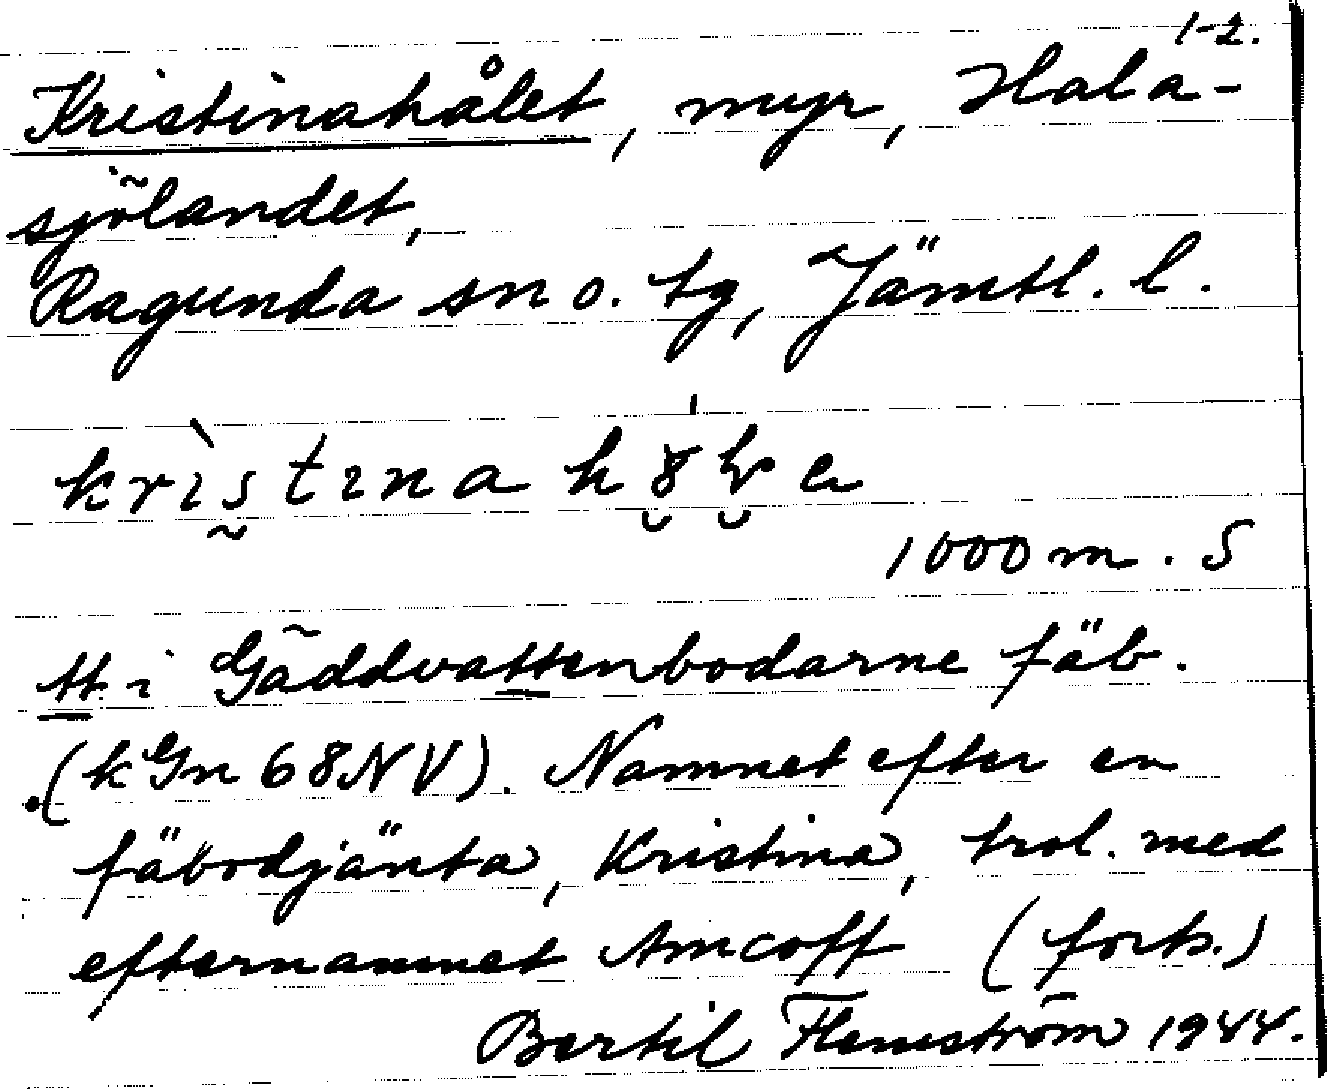 1-2.
Kristinahålet, myr, Hala-
sjölandet,
Ragunda sn o. tg, Jämtl. l.
1000 m. S
tt. i Gäddvattenbodarne fäb.
(kGn 68NV). Namnet efter en
fäbodjänta, Kristina, trol. med
efternamnet Amcoff (forts.)
Bertil Flemström 1944.